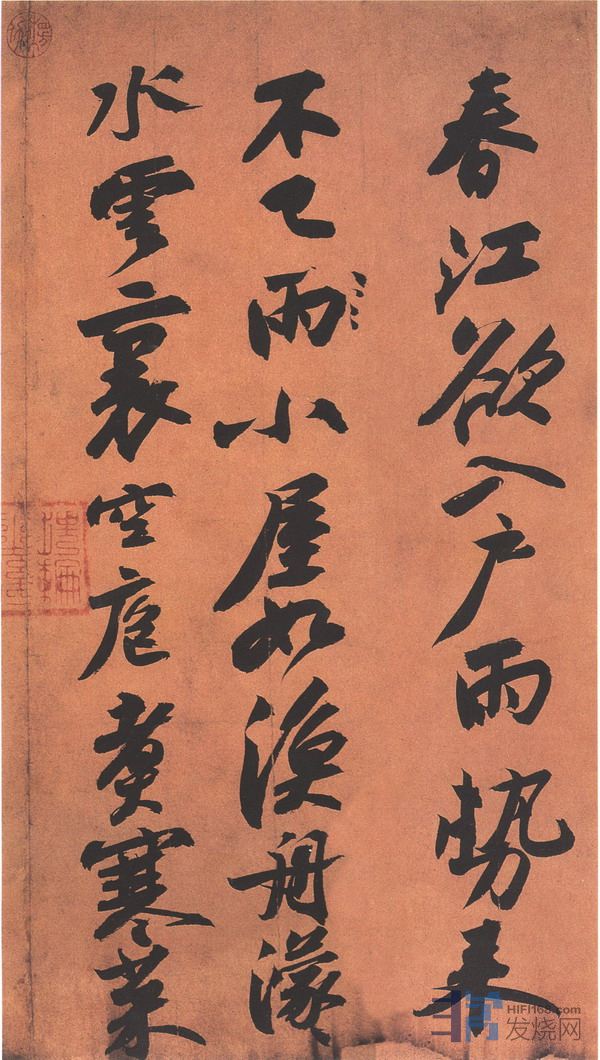 春江欲入户雨勢来
不已雨小屋如漁舟濛々
水雲裏空庖煮寒菜
HIFI168.com
发烧网